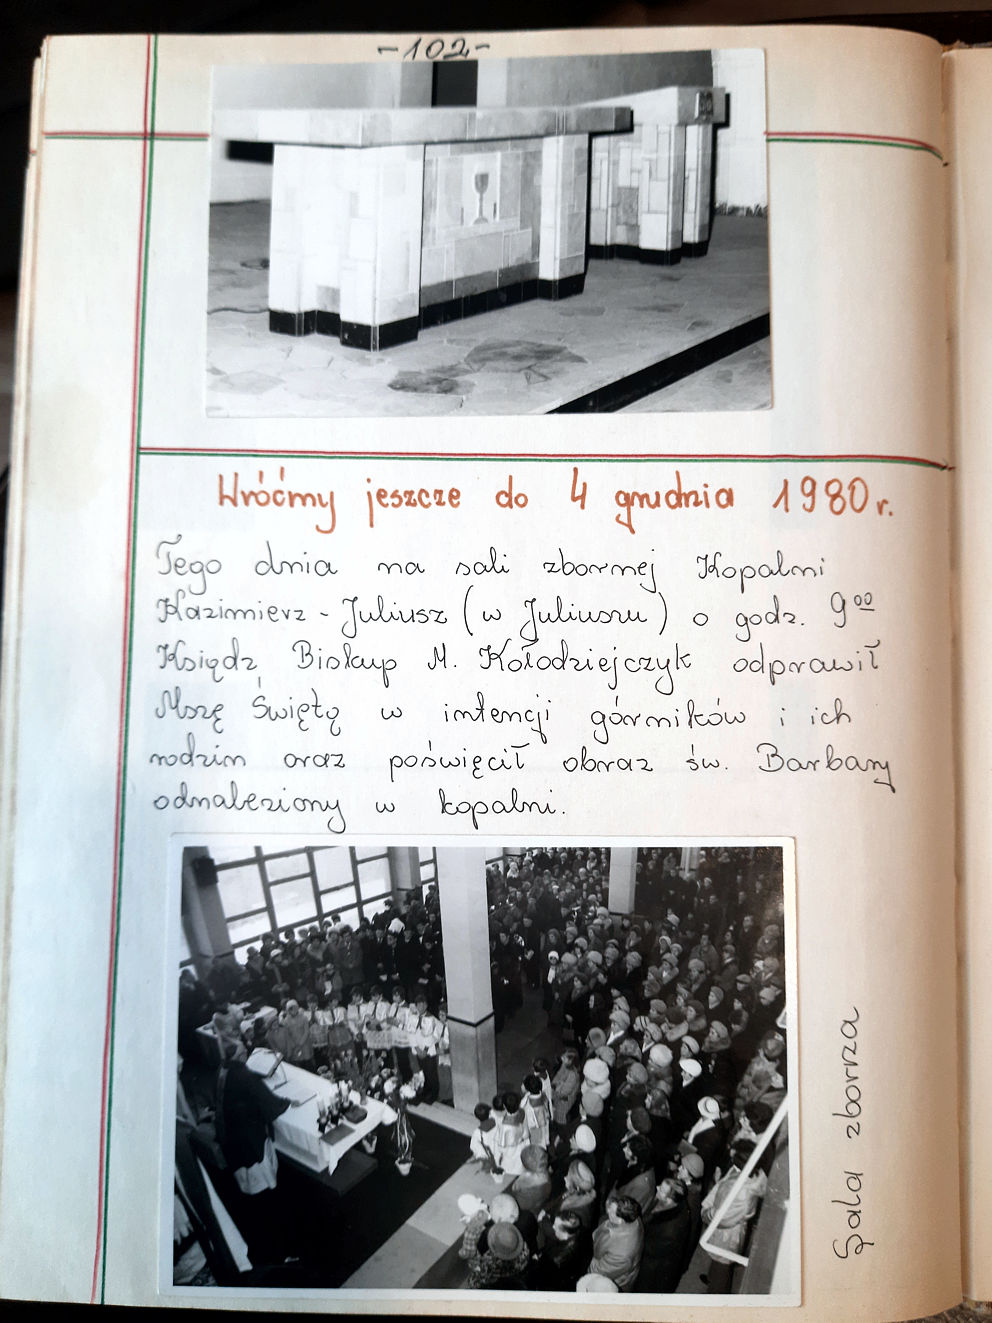 -102-
Wróćmy jeszcze do 4 grudnia 1980 r.
Tego dnia na sali zbornej Kopalni
Kazimierz - Juliusz (w Juliuszu) o godz. 9⁰⁰
Ksiądz Biskup M. Kołodziejczyk odprawił
Mszę Świętą w intencji górników i ich
rodzin oraz poświęcił obraz św. Barbary
odnaleziony w kopalni.
Sala zborna